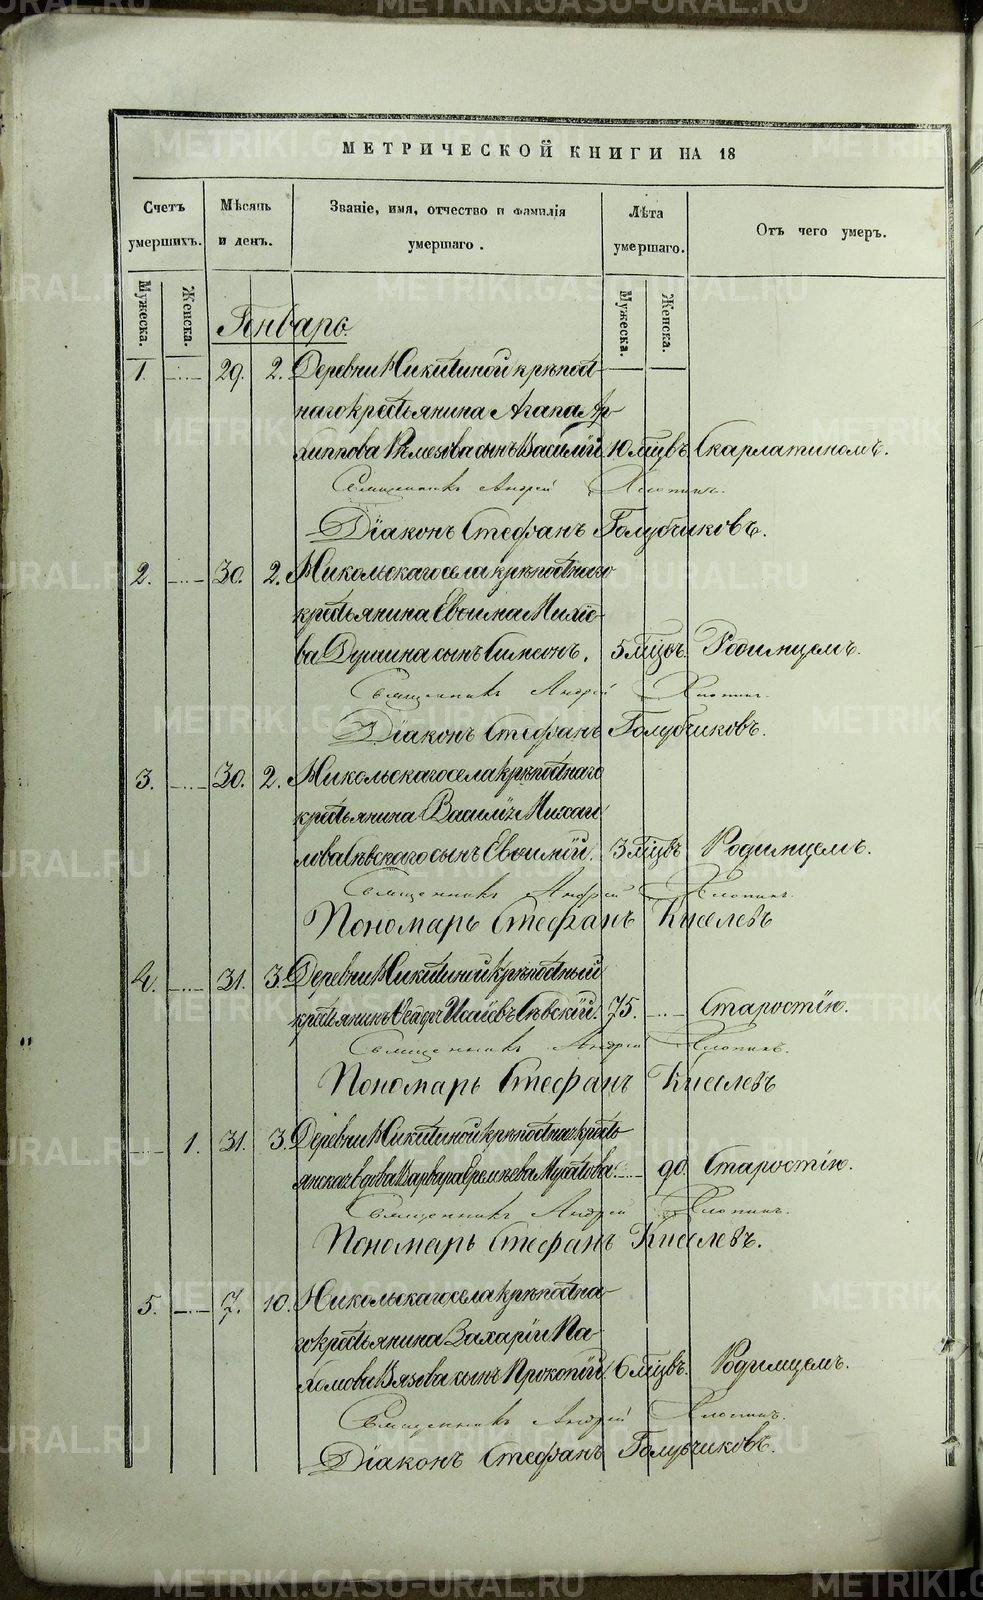 METRIKI.GASO-URAL.RU
МЕТРИЧЕСКОЙ КНИГИ НА 18
Счетъ умершихъ.
Мужеска.
Женска.
Мѣсяць и день.
Званіе, имя, отчество и фамилія умершаго.
Лѣта умершаго.
Мужеска.
Женска.
Отъ чего умеръ.
Генварь.
1. 29. 2. Деревни Никитиной крѣпост-
наго крестьянина Агапа Ар-
хиппова Рѣмезова сынъ Василій 10 мцвъ Скарлатиномъ.
Священникъ Андрей Хлопинъ.
Діаконъ Стефанъ Голубчиковъ.
2. 30. 2. Никольскаго села крѣпостнаго
крестьянина Евѳима Михѣе-
ва сынъ Симеонъ. 5 мцвъ. Родимцемъ.
Священникъ Андрей Хлопинъ.
Діаконъ Стефанъ Голубчиковъ.
3. 30. 2. Никольскаго села крѣпостнаго
крестьянина Василія Михаи
лова Сѣвскаго сынъ Евѳимій. 3 мцвъ Родимцемъ.
Священникъ Андрей Хлопинъ.
Пономарь Стефанъ Киселевъ
4. 31. 3. Деревни Никитиной крѣпостный
крестьянинъ Исаіевъ Сѣвскій. 75. Старостію.
Священникъ Андрей Хлопинъ.
Пономарь Стефанъ Киселевъ
1. 31. 3. Деревни Никитиной крѣпостная кресть-
янская вдова Варвара Еремѣева Мусатова. 90. Старостію.
Священникъ Андрей Хлопинъ.
Пономарь Стефанъ Киселевъ.
5. 7. 10. Никольскаго села крѣпостна-
го крестьянина Захаріи Па-
хомова Вязова сынъ Прокопій 6 мцвъ. Родимцемъ.
Священникъ Андрей Хлопинъ.
Діаконъ Стефанъ Голубчиковъ.